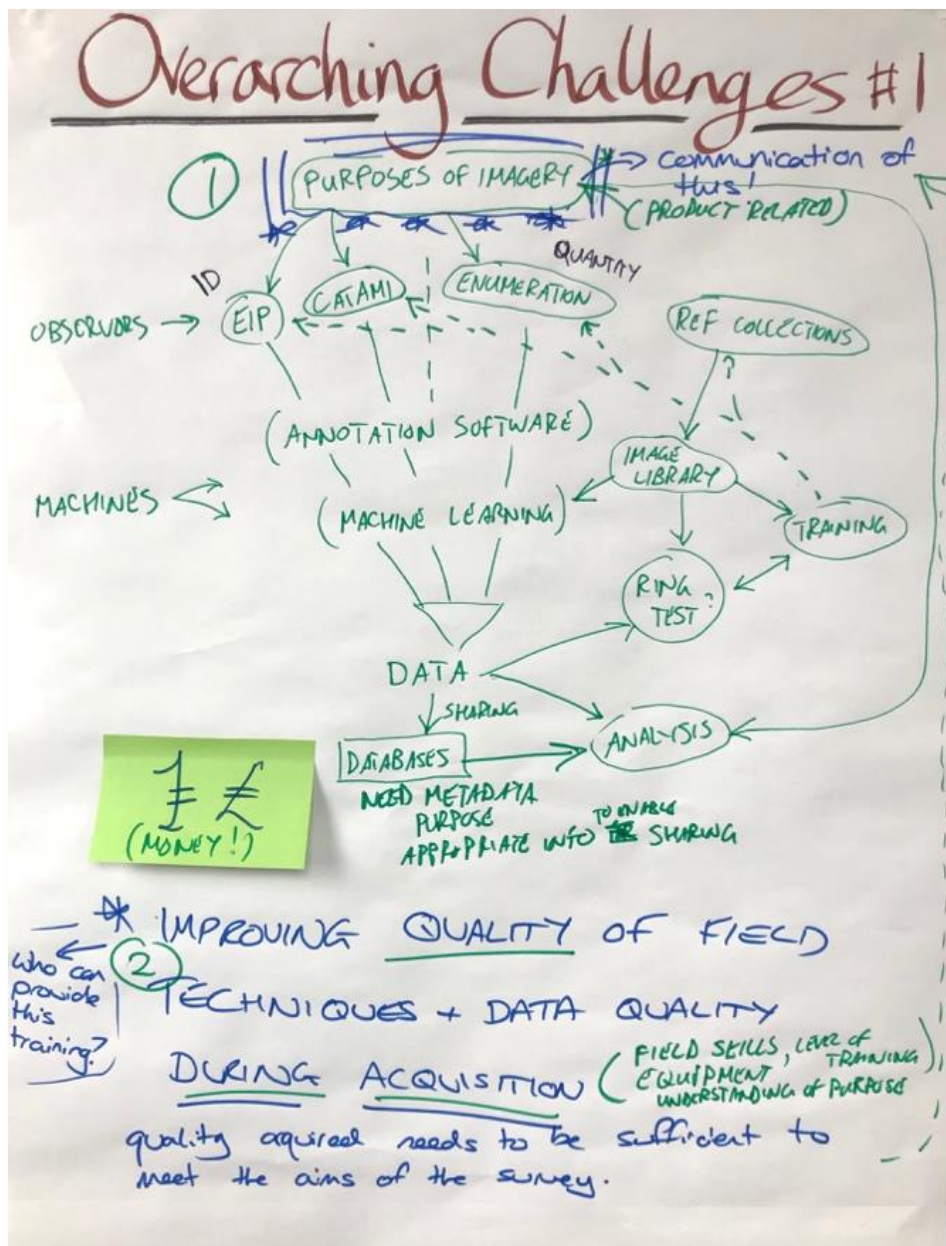 Overarching Challenges #1
1
PURPOSES OF IMAGERY
communication of
this!
(PRODUCT RELATED)
ID
QUANTITY
OBSERVORS
EIP
CATAMI
ENUMERATION
REF COLLECTIONS
(ANNOTATION SOFTWARE)
IMAGE
LIBRARY
MACHINES
(MACHINE LEARNING)
TRAINING
RING ?
TEST
DATA
SHARING
DATABASES
ANALYSIS
NEED METADATA
PURPOSE
TO ENABLE
APPROPRIATE INFO SHARING
£
(MONEY!)
* IMPROVING QUALITY OF FIELD
2
TECHNIQUES + DATA QUALITY
who can
provide
this
training?
DURING ACQUISITION
(FIELD SKILLS, LEVEL OF
TRAINING)
EQUIPMENT
UNDERSTANDING OF PURPOSE
quality aquired needs to be sufficient to
meet the aims of the survey.